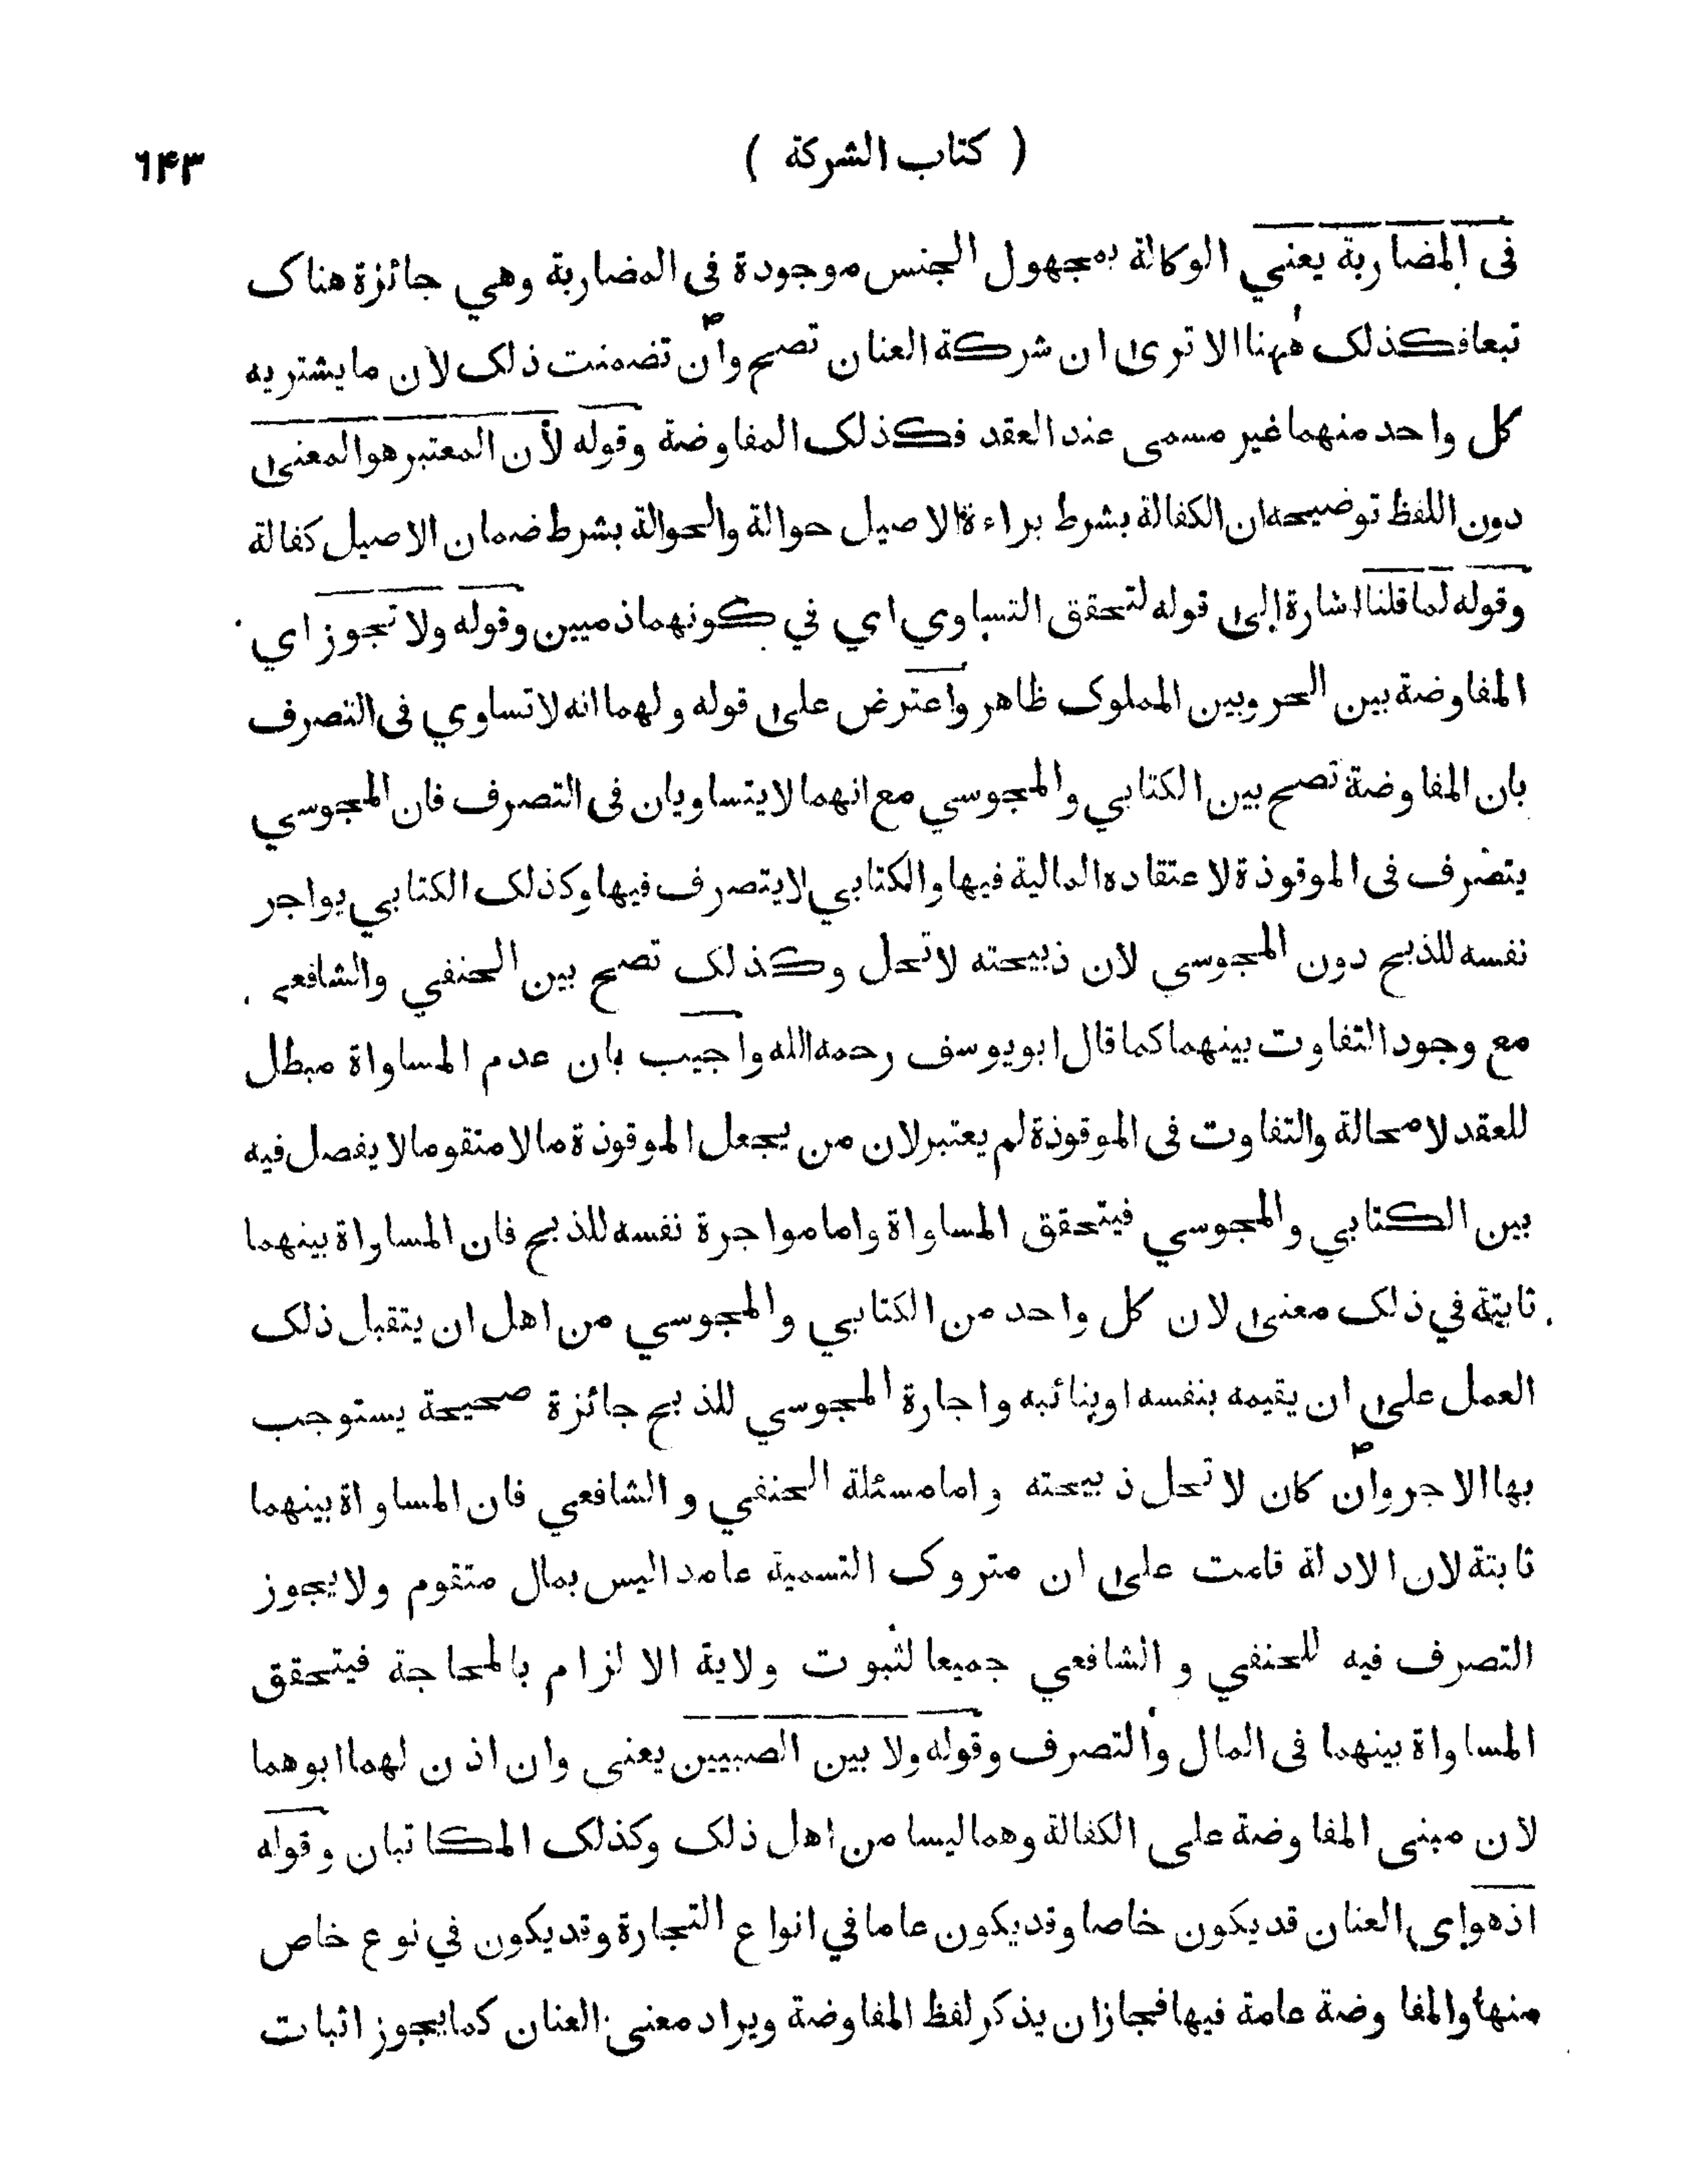 ( كتاب الشركة ) ٦٤٣
فى المضاربة يعني الوكالة بمجهول الجنس موجودة فى المضاربة وهي جائزة هناك
تبعا فكذلك ههنا الا ترى ان شركة العنان تصح وان تضمنت ذلك لان ما يشتريه
كل واحد منهما غير مسمى عند العقد فكذلك المفاوضة وقوله لأن المعتبر هو المعنى
دون اللفظ توضيحه ان الكفالة بشرط براءة الاصيل حوالة والحوالة بشرط ضمان الاصيل كفالة
وقوله لما قلنا اشارة الى قوله لتحقق التساوي اي في كونهما ذميين وقوله ولا تجوز اي
المفاوضة بين الحر وبين المملوك ظاهر واعترض على قوله ولهما انه لا تساوي فى التصرف
بان المفاوضة تصح بين الكتابي والمجوسي مع انهما لا يتساويان فى التصرف فان المجوسي
يتصرف فى الموقوذة لاعتقاده المالية فيها والكتابي لا يتصرف فيها وكذلك الكتابي يواجر
نفسه للذبح دون المجوسي لان ذبيحته لا تحل وكذلك تصح بين الحنفي والشافعي
مع وجود التفاوت بينهما كما قال ابو يوسف رحمه الله واجيب بان عدم المساواة مبطل
للعقد لا محالة والتفاوت فى الموقوذة لم يعتبر لان من يجعل الموقوذة مالا متقوما لا يفصل فيه
بين الكتابي والمجوسي فيتحقق المساواة واما مواجرة نفسه للذبح فان المساواة بينهما
ثابتة في ذلك معنى لان كل واحد من الكتابي والمجوسي من اهل ان يتقبل ذلك
العمل على ان يقيمه بنفسه او بنائبه واجارة المجوسي للذبح جائزة صحيحة يستوجب
بها الاجر وان كان لا تحل ذبيحته واما مسئلة الحنفي والشافعي فان المساواة بينهما
ثابتة لان الادلة قامت على ان متروك التسمية عامدا ليس بمال متقوم ولا يجوز
التصرف فيه للحنفي والشافعي جميعا لثبوت ولاية الالزام بالمحاجة فيتحقق
المساواة بينهما فى المال والتصرف وقوله ولا بين الصبيين يعنى وان اذن لهما ابوهما
لان مبنى المفاوضة على الكفالة وهما ليسا من اهل ذلك وكذلك المكاتبان وقوله
اذ هو اي العنان قد يكون خاصا وقد يكون عاما في انواع التجارة وقد يكون في نوع خاص
منها والمفاوضة عامة فيها فجاز ان يذكر لفظ المفاوضة ويراد معنى العنان كما يجوز اثبات